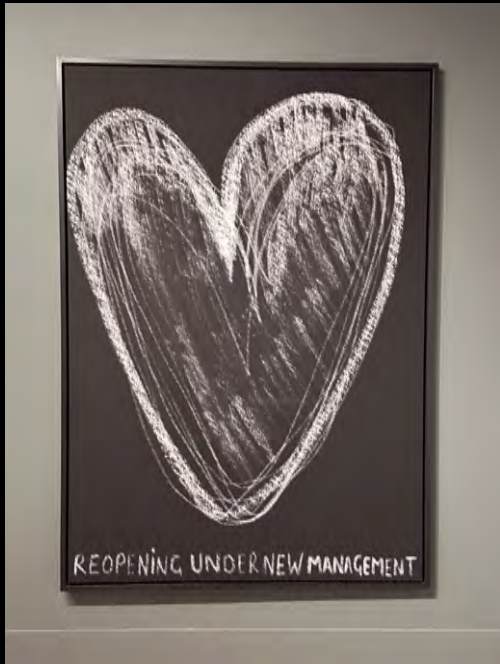 REOPENiNG UNDER NEW MANAGEMENT